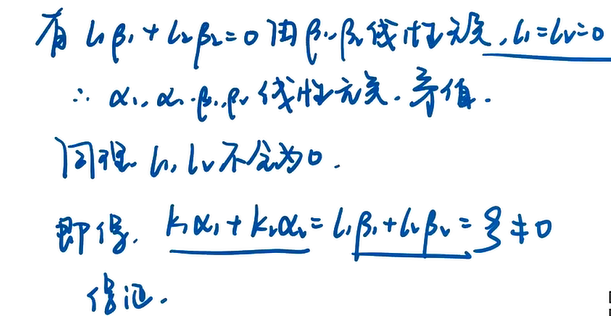 有 l₁β₁ + l₂β₂ = 0 由β₁, β₂ 线性无关, l₁ = l₂ = 0
∴ α₁, α₂, β₁, β₂ 线性无关. 矛盾.
同理. l₁, l₂ 不全为0.
即得. k₁α₁ + k₂α₂ = l₁β₁ + l₂β₂ = ξ ≠ 0
得证.